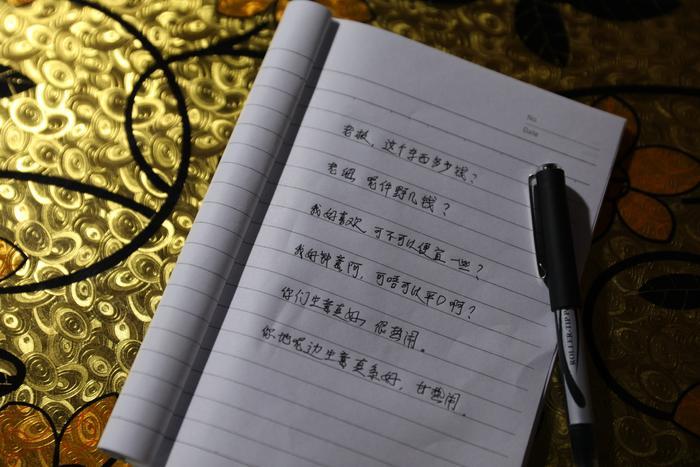 No.
Date
老板，这个东西多少钱？
老细，呢件野几钱？
我好喜欢，可不可以便宜一些？
我好钟意阿，可唔可以平D啊？
你们生意真好，很热闹。
你地呢边生意真系好，甘热闹。
ROLLER TIP